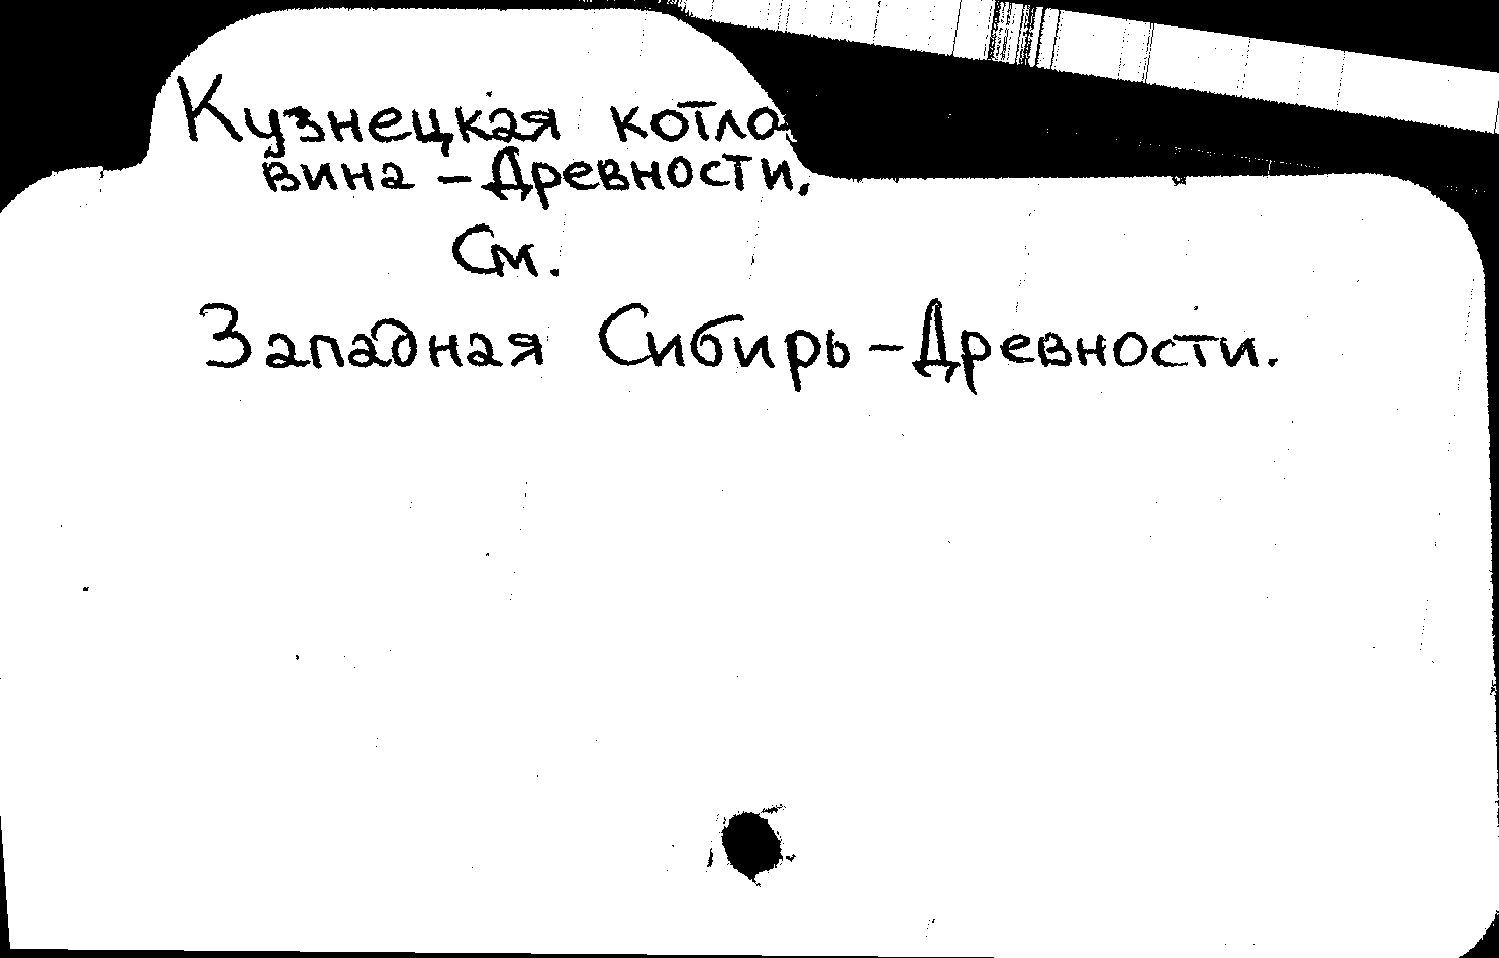 Кузнецкая котло
вина - Древности.
См.
Западная Сибирь - Древности.